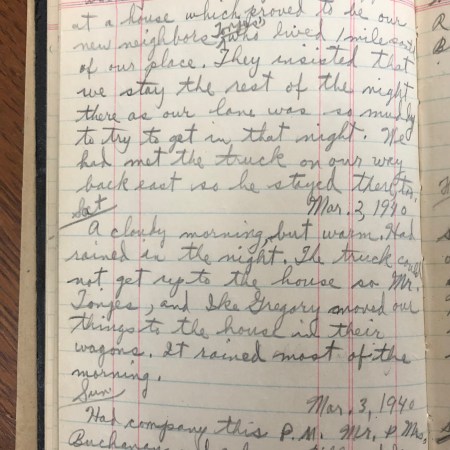 at a house which proved to be our
new neighbors Tonges' who lived 1 mile south
of our place. They insisted that
we stay the rest of the night
there as our lane was so muddy
to try to get in that night. We
had met the truck on our way
back east so he stayed there too.
Sat Mar. 2, 1940
A cloudy morning, but warm. Had
rained in the night. The truck could
not get up to the house so Mr.
Tonges, and Ike Gregory moved our
things to the house in their
wagons. It rained most of the
morning.
Sun Mar. 3, 1940
Had company this P.M. Mr. & Mrs.
Buchanan